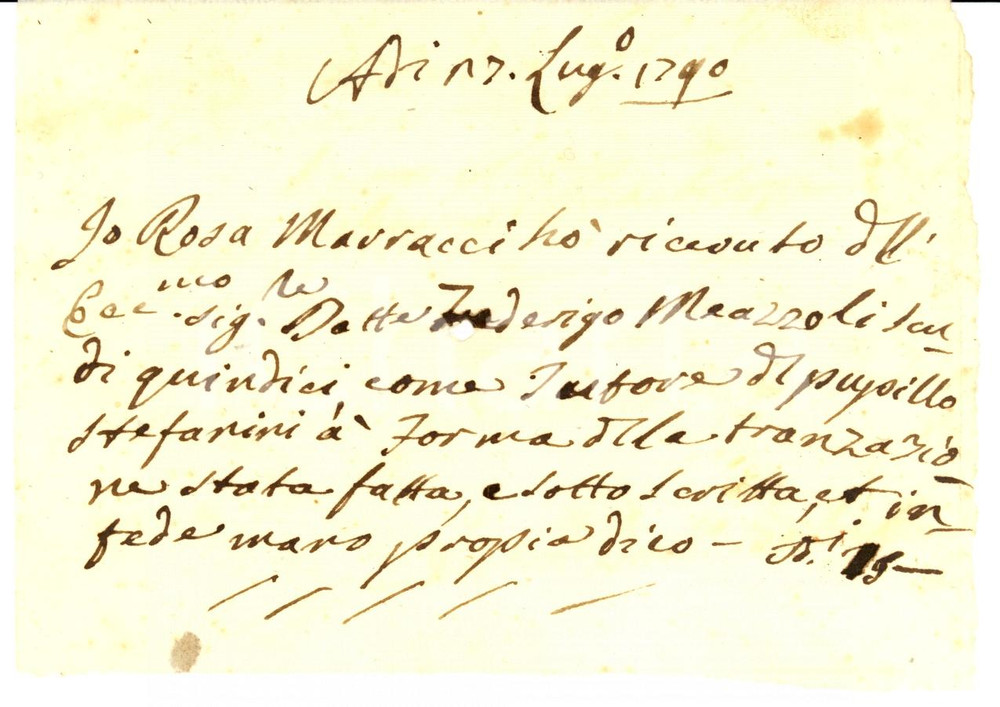 Adi 17. Lug.o 1790
Jo Rosa Marracci hò ricevuto dll'
Ecc.mo Sig.re Dotte Federigo Meazzoli scu-
di quindici, come Tutore dl pupillo
Stefanini à forma dlla tranzazio
ne stata fatta, e sotto scritta, et in
fede mano propia dico - 15 -